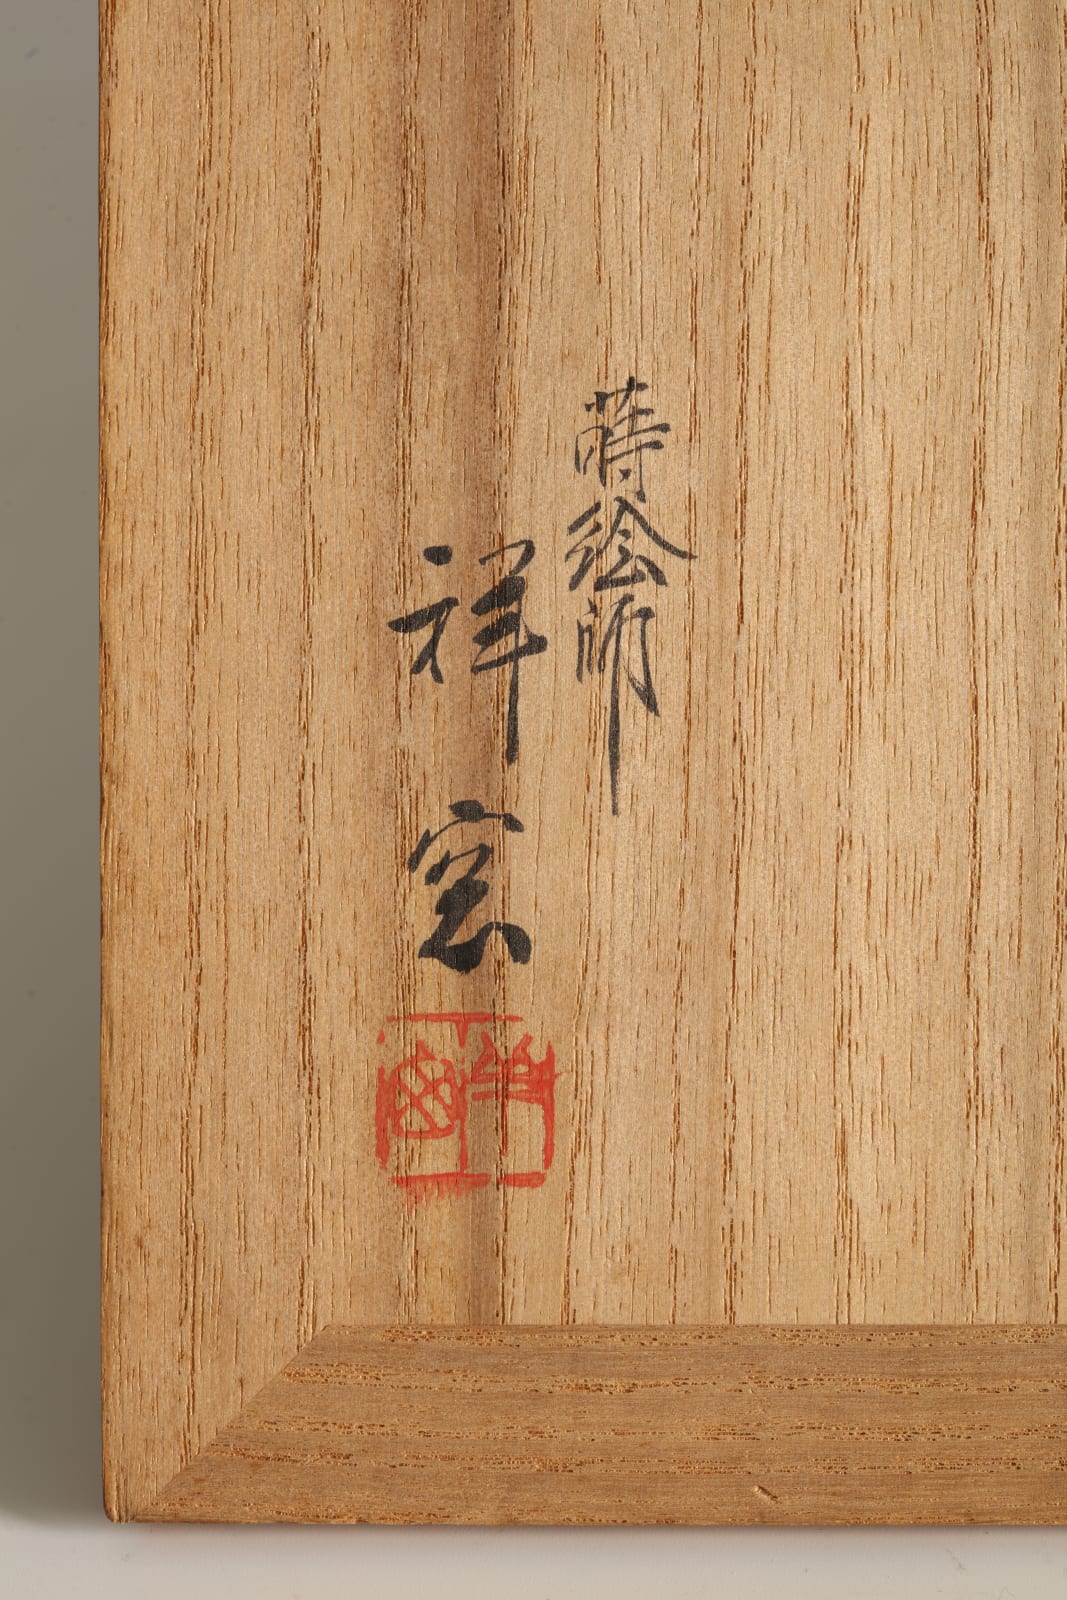 蒔絵師
祥窓